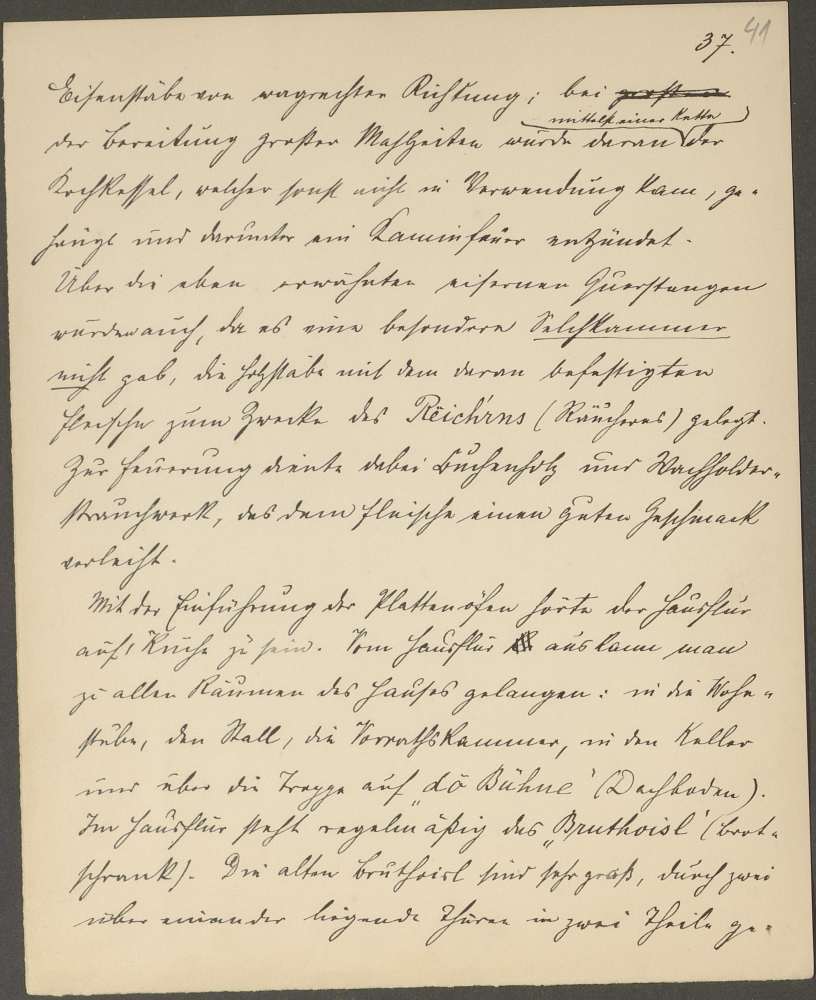 37. 41
Eisenstäbe von wagrechter Richtung; bei großen
mittelst einer Kette
der Bereitung großer Mahlzeiten wurde daran der
Kochkessel, welcher sonst nicht in Verwendung kam, ge-
hängt und darunter ein Kaminfeuer entzündet.
Über die eben erwähnten eisernen Querstangen
wurden auch, da es eine besondere Selchkammer
nicht gab, die Holzstäbe mit dem daran befestigten
Fleische zum Zwecke des Rëich'rns (Räucherns) gelegt.
Zur Feuerung diente dabei Buchenholz und Wachholder-
strauchwerk, das dem Fleische einen guten Geschmack
verleiht.
Mit der Einführung der Plattenöfen hörte der Hausflur
auf, Küche zu sein. Vom Hausflur aus kann man
zu allen Räumen des Hauses gelangen: in die Wohn-
stube, den Stall, die Vorrathskammer, in den Keller
und über die Treppe auf „dö Bühne" (Dachboden).
Im Hausflur steht regelmäßig das „Bruthoisl" (Brot-
schrank). Die alten Bruthoisl sind sehr groß, durch zwei
über einander liegende Thüren in zwei Theile ge-